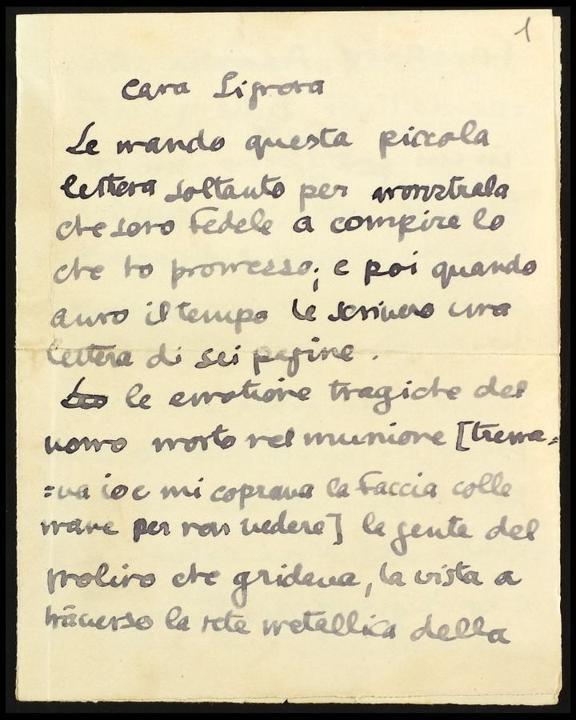 1
Cara Signora
Le mando questa piccola
lettera soltanto per monstrala
che sono fedele a compire lo
che ho promesso; e poi quando
auro il tempo le scrivero una
lettera di sei pagine.
le emotione tragiche del
uomo morto nel munione [trema=
=va io e mi coprava la faccia colle
mane per non vedere] la gente del
molino che gridava, la vista a
traverso la rete metallica della